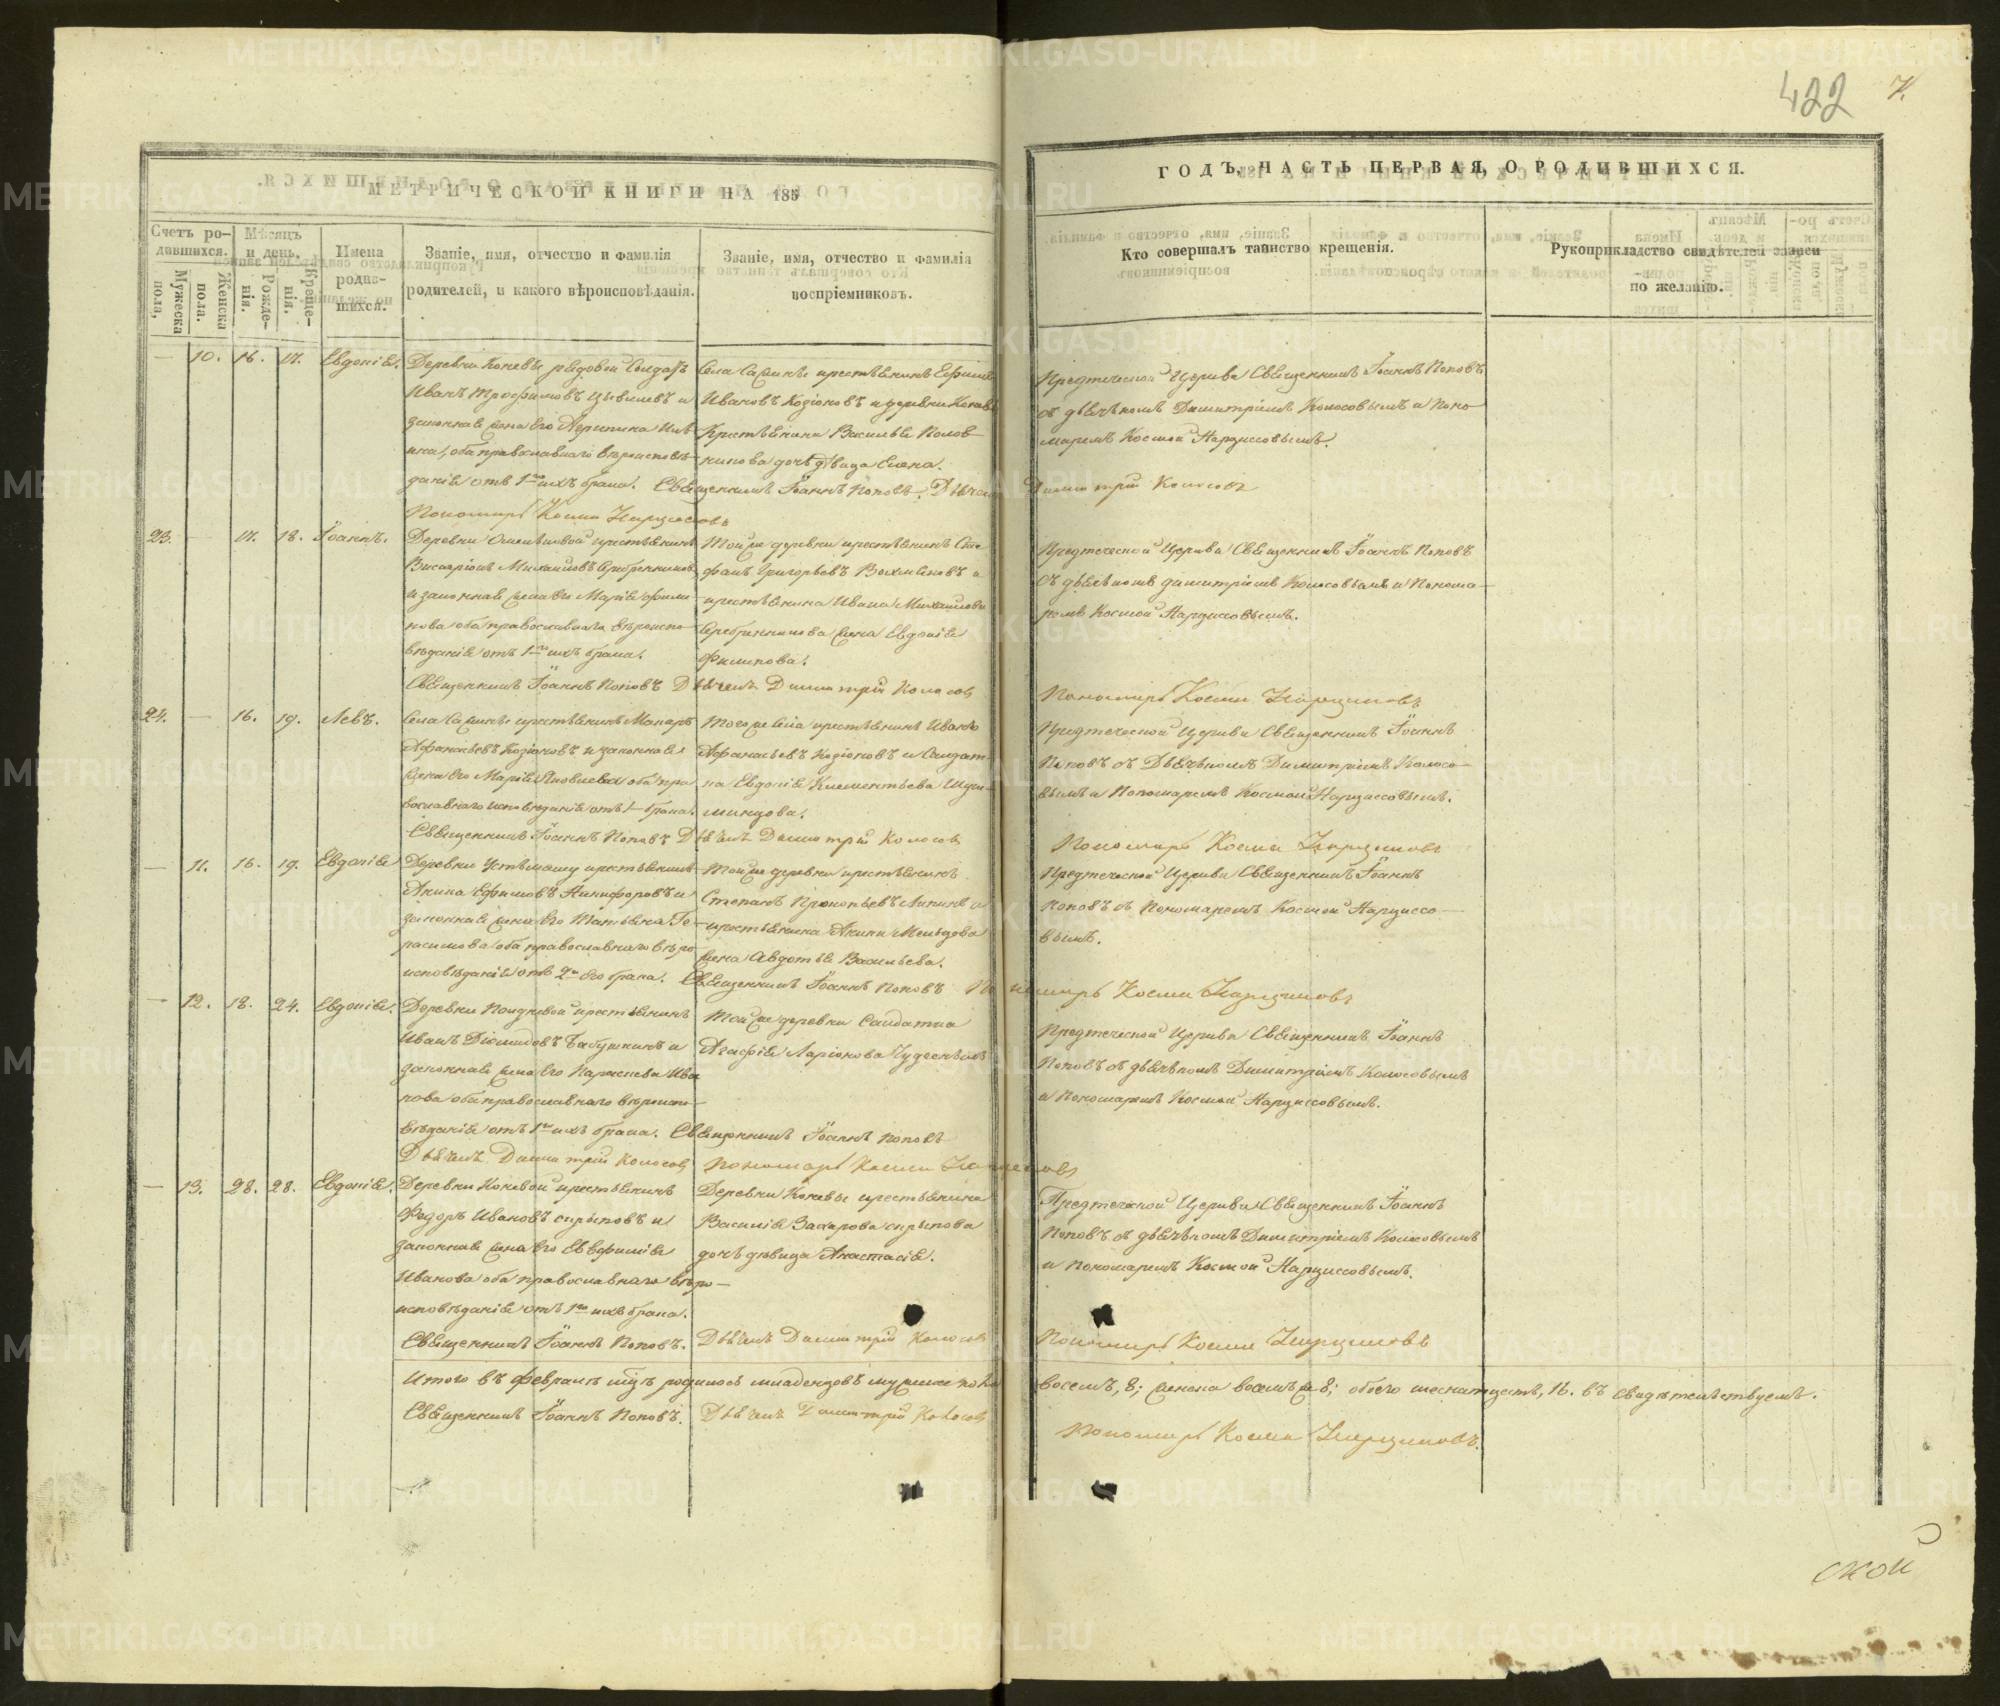 422
7.
МЕТРИЧЕСКОЙ КНИГИ НА 185
ГОДЪ, ЧАСТЬ ПЕРВАЯ, О РОДИВШИХСЯ.
Счетъ ро-
дившихся.
Мужеска
пола,
Женска
пола.
Мѣсяцъ
и день.
Рожде-
нія.
Креще-
нія.
Имена
родив-
шихся.
Званіе, имя, отчество и фамилія
родителей, и какого вѣроисповѣданія.
Званіе, имя, отчество и фамилія
воспріемниковъ.
Кто совершалъ таинство крещенія.
Рукоприкладство свидѣтелей записи
по желанію.
— 10. 16. 17. Евдокія.
Деревни Коневы рядовой Солдатъ
Иванъ Трофимовъ и
законная жена его Агрипина
обa православнаго вѣроисповѣ-
данія отъ 1го ихъ брака.
крестьянинъ Ефимъ
Ивановъ Козіоновъ и деревни Коневы
Крестьянина Василья Полов-
никова дочь дѣвица Елена.
Предтеченской Церкви Священникъ Іоаннъ Поповъ
съ дьячкомъ Димитріемъ Колосовымъ и Поно-
маремъ Космой Нарциссовымъ.
Священникъ Іоаннъ Поповъ. Дьячекъ Димитрій Колосовъ
Пономарь Косма Нарциссовъ
23. — 17. 18. Іоаннъ.
Деревни крестьянинъ
Виссаріонъ Михайловъ Серебренниковъ
и законная жена его Марія Фили-
пова оба православнаго вѣроиспо-
вѣданія отъ 1го ихъ брака.
Той же деревни крестьянинъ Сте-
фанъ Григорьевъ и
крестьянина Ивана Михайлова
Серебренникова жена Евдокія
Филипова.
Предтеченской Церкви Священникъ Іоаннъ Поповъ
съ дьячкомъ Димитріемъ Колосовымъ и Понома-
ремъ Космой Нарциссовымъ.
Священникъ Іоаннъ Поповъ Дьячекъ Димитрій Колосовъ
Пономарь Косма Нарциссовъ
24. — 16. 19. Левъ.
крестьянинъ Макаръ
Афанасьевъ Козіоновъ и законная
жена его Марія Яковлева оба пра-
вославнаго исповѣданія отъ 1 брака.
Того же села крестьянинъ Иванъ
Афанасьевъ Козіоновъ и Солдат-
ка Евдокія Климентьева
Предтеченской Церкви Священникъ Іоаннъ
Поповъ съ Дьячкомъ Димитріемъ Колосо-
вымъ и Пономаремъ Космой Нарциссовымъ.
Священникъ Іоаннъ Поповъ Дьячекъ Димитрій Колосовъ
Пономарь Косма Нарциссовъ
— 11. 16. 19. Евдокія
Деревни крестьянинъ
Акила Ефимовъ Никифоровъ и
законная жена его Татьяна Ге-
расимова оба православнаго вѣро-
исповѣданія отъ 2го его брака.
Той же деревни крестьянинъ
Степанъ Прокопьевъ и
крестьянина
жена Авдотья Васильева.
Предтеченской Церкви Священникъ Іоаннъ
Поповъ съ Пономаремъ Космой Нарциссо-
вымъ.
Священникъ Іоаннъ Поповъ Пономарь Косма Нарциссовъ
— 12. 18. 24. Евдокія.
Деревни крестьянинъ
Иванъ Діомидовъ Бабушкинъ и
законная жена его Ива-
нова оба православнаго вѣроиспо-
вѣданія отъ 1го ихъ брака.
Той же деревни Солдатка
Агафія Ларіонова
Предтеченской Церкви Священникъ Іоаннъ
Поповъ съ дьячкомъ Димитріемъ Колосовымъ
и Пономаремъ Космой Нарциссовымъ.
Священникъ Іоаннъ Поповъ
Дьячекъ Димитрій Колосовъ Пономарь Косма Нарциссовъ
— 13. 28. 28. Евдокія.
Деревни Коневой крестьянинъ
Федоръ Ивановъ Скрыповъ и
законная жена его Евфимія
Иванова оба православнаго вѣро-
исповѣданія отъ 1го ихъ брака.
Деревни Коневы крестьянина
Василія Захарова Скрыпова
дочь дѣвица Анастасія.
Предтеченской Церкви Священникъ Іоаннъ
Поповъ съ дьячкомъ Димитріемъ Колосовымъ
и Пономаремъ Космой Нарциссовымъ.
Священникъ Іоаннъ Поповъ. Дьячекъ Димитрій Колосовъ
Пономарь Косма Нарциссовъ
Итого въ Февралѣ родилось младенцовъ мужска пола восемь, 8; женска восемь 8; обоего шеснатцеть, 16. въ свидѣтельствуемъ.
Священникъ Іоаннъ Поповъ. Дьячекъ Димитрій Колосовъ
Пономарь Косма Нарциссовъ.
ской
METRIKI.GASO-URAL.RU